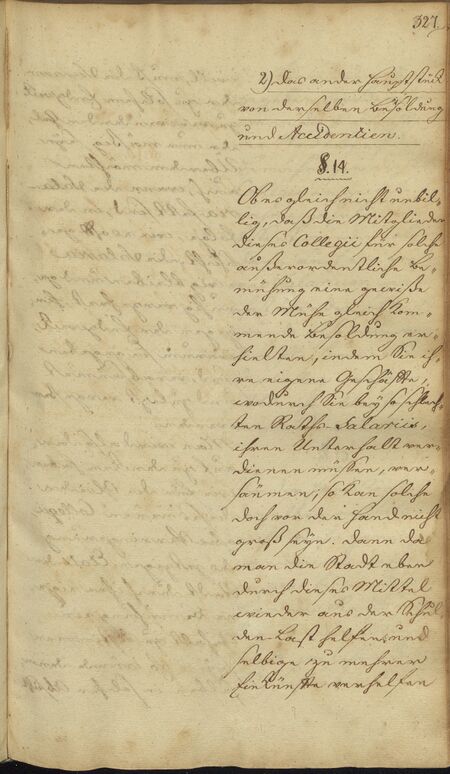 327.
2.) Das ander Hauptstück
von derselben Besoldung
und Accidentien.
§. 14.
Ob es gleich nicht unbil-
lig, daß die Mitglieder
dieses Collegii für solche
außerordentliche Be-
mühung eine gewiße
der Mühe gleich kom-
mende Besoldung er-
hielten, indem Sie ih-
re eigene Geschäffte,
wodurch Sie bey so schlech-
ten Raths-Salariis,
ihren Unterhalt ver-
dienen müssen, ver-
säumen, so kan solche
doch vor der Hand nicht
groß seyn. Dann da
man die Stadt eben
durch dieses Mittel
wieder aus der Schul-
den-Last helfen, und
selbige zu mehrer
Einkünffte verhelfen